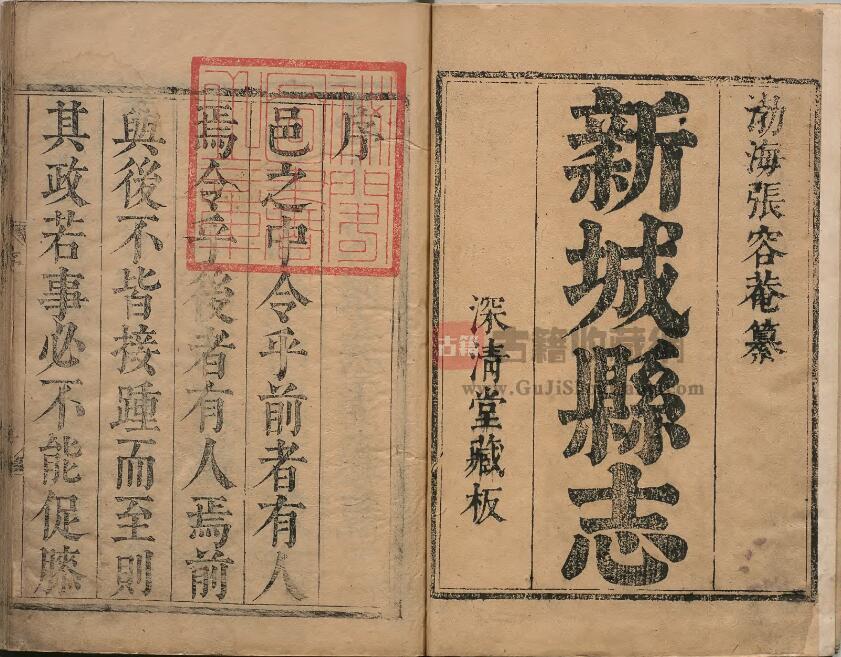 渤海張容菴纂
新城縣志
深清堂藏板
序
邑之中令乎前者有人
焉令乎後者有人焉前
與後不皆接踵而至則
其政若事必不能促膝
古籍
古籍收藏网